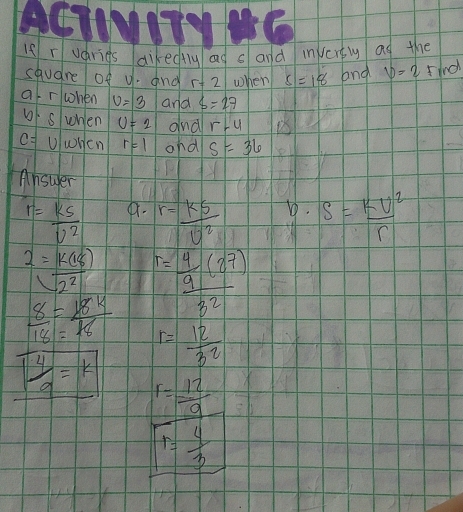 ACTIVITY #6
If r varies directly as s and inversly as the
square of v. and r=2 when s=18 and v=2 Find
a. r when v=3 and s=27
b. s when v=2 and r=4
c= v when r=1 and s=36
Answer
r = ks/v²
2 = k(18)/2²
8/18 = 18k/18
4/9 = k
a. r = ks/v²
r = 4/9 (27)/3²
r = 12/3²
r = 12/9
r = 4/3
b. s = kv²/r